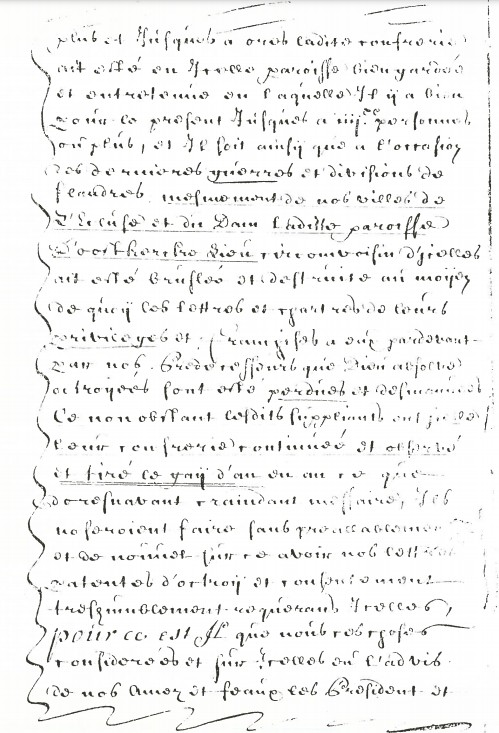 plus et Jusques a ores ladite confrerie
ait esté en Jcelle paroisse bien gardée
et entretenue en laquelle Jl ÿ a bien
pour le present Jusques a iiijc personnes
ou plus, et Jl soit ainsÿ que a l'occasion
des dernieres guerres et divisions de
flandres mesmement de nos villes de
L'Ecluse et du Dam Ladite paroisse
D'oostkercke lieu circonvoisin d'Jcelles
ait esté bruslée et destruite au moÿen
de quoÿ les lettres et chartres de leurs
privileges et franchises a eux pardevant
par nos Predecesseurs que Dieu absolve
octroyees sont esté perdues et
Ce non obstant lesdits suppliants ont
leur confrerie continuée et observé
et tiré le gaÿ d'an en an ce que
doresnavant craindant mesfaire, Jls
noseroient faire sans preallablement
et de nouvel sur ce avoir nos lettres
patentes d'octroÿ et consentement
treshumblement requerans Jcelles,
pource est Jl que nous ces choses
considerées et sur Jcelles eu l'advis
de nos Amez et feaux les President et